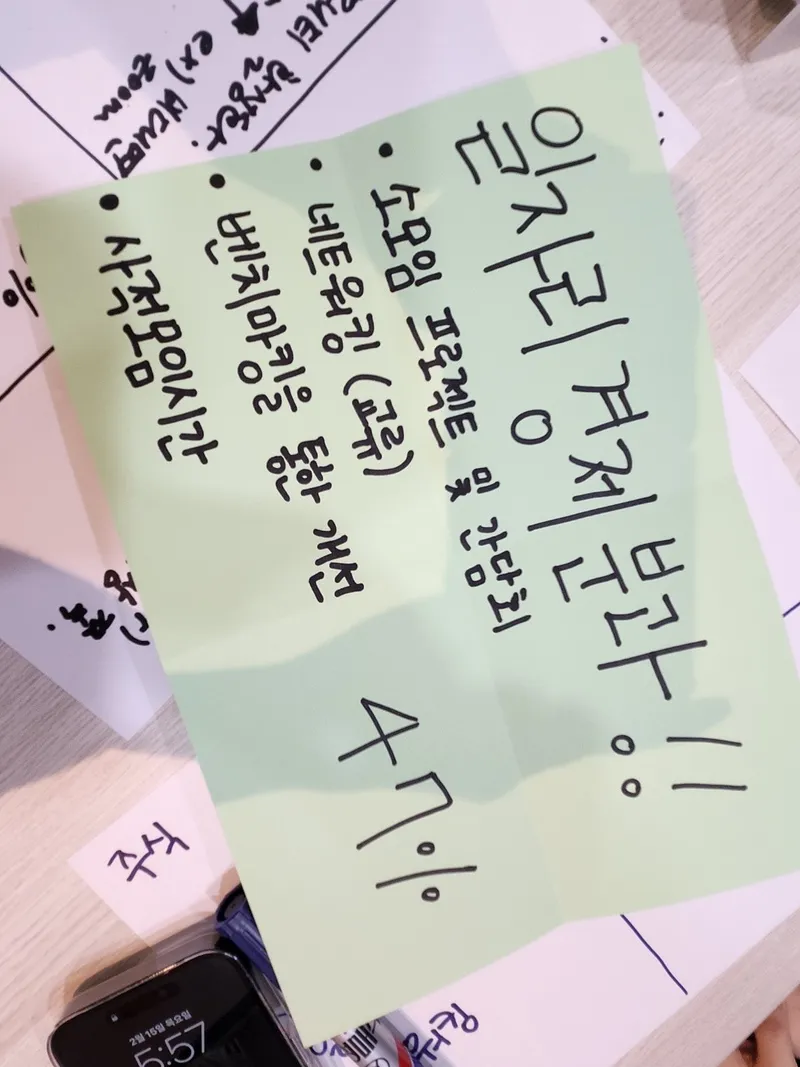 일자리경제분과!!
• 소모임 프로젝트 및 간담회
• 네트워킹 (교류)
• 벤치마킹을 통한 개선
• 사적모임시간
47%
활성화.
ex) 비대면
zoom
2월 15일 목요일
5:57